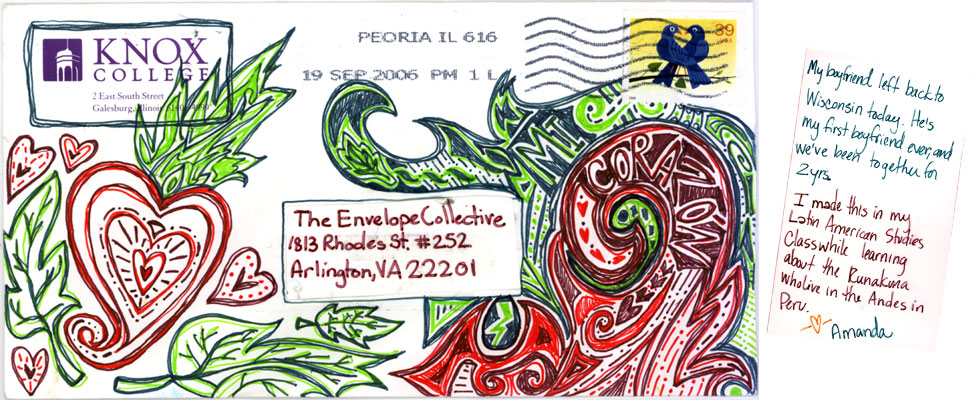 KNOX
COLLEGE
2 East South Street
Galesburg, Illinois
PEORIA IL 616
19 SEP 2006 PM 1 L
39
MI
CORAZON
The Envelope Collective
1813 Rhodes St. #252
Arlington, VA 22201
My boyfriend left back to
Wisconsin today. He's
my first boyfriend ever, and
we've been together for
2 yrs.
I made this in my
Latin American Studies
Class while learning
about the Runakuna
who live in the Andes in
Peru.
Amanda